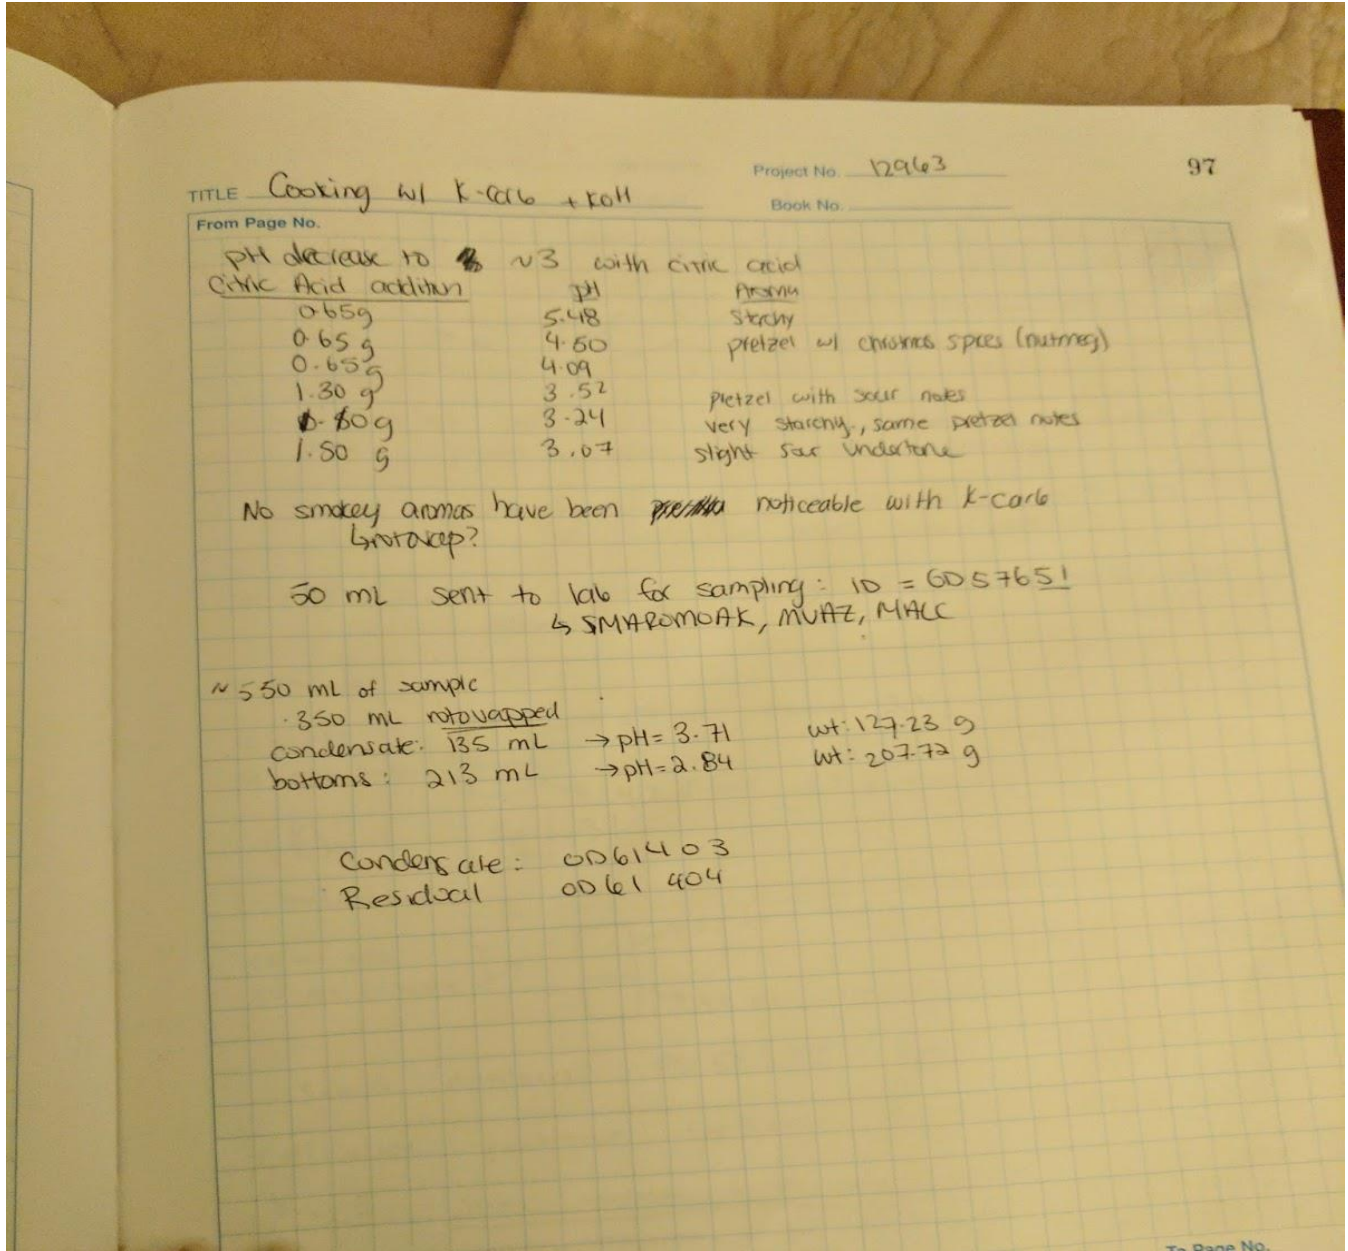 Project No. 12963
97
TITLE Cooking w/ K-carb + KOH
Book No.
From Page No.
pH decrease to ~3 with citric acid
Citric Acid addition pH Aroma
0.65g 5.48 Starchy
0.65 g 4.60 pretzel w/ christmas spices (nutmeg)
0.65g 4.09
1.30 g 3.52 Pretzel with sour notes
g 3.24 very starchy, same pretzel notes
1.50 g 3.07 slight sour undertone
No smokey aromas have been noticeable with k-carb
↳rotovap?
50 mL sent to lab for sampling: ID = OD57651
↳ SMAROMOAK, MVAZ, MALC
~550 mL of sample
·350 mL rotovapped
condensate: 135 mL → pH= 3.71 wt: 127.23 g
bottoms: 213 mL → pH=2.84 wt: 207.72 g
Condensate: OD61403
Residual OD61404
To Page No.